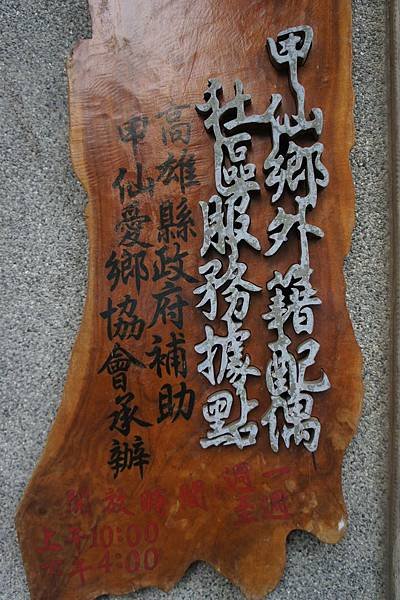 甲仙鄉外籍配偶
社區服務據點
高雄縣政府補助
甲仙愛鄉協會承辦
開放時間
週一
至週
上午10:00
下午4:00